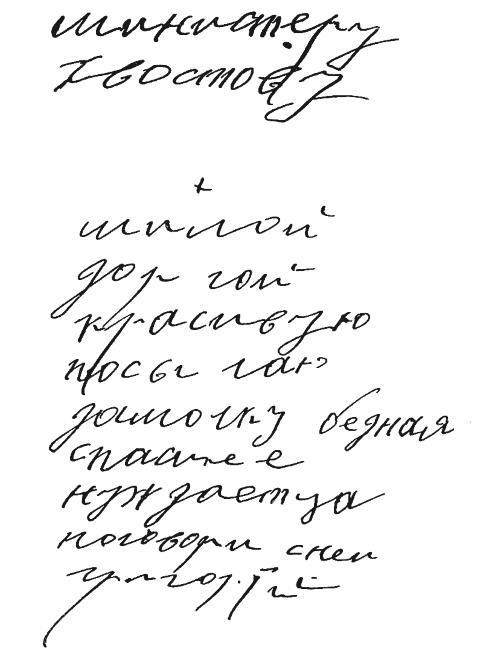 министеру
хвостову
+
милой
дор гой
красивую
посылаю
дамочку бедная
спаси ее
нуждаетца
поговори сней
григорий